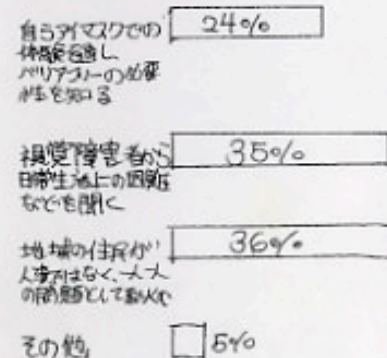 自らアイマスクでの
体験を通し
バリアフリーの必要
性を知る
24%
視覚障害者から
日常生活上の困難
などを聞く
35%
地域の住民が
人事ではなく、一人一人
の問題として取り組む
36%
その他
5%